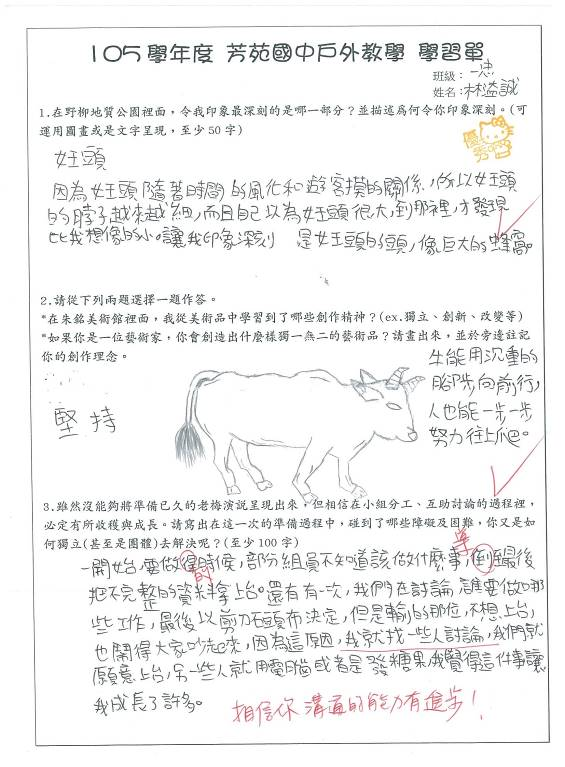 105學年度 芳苑國中戶外教學 學習單
班級：一忠
姓名：林溢誠
1.在野柳地質公園裡面，令我印象最深刻的是哪一部分？並描述為何令你印象深刻。(可
運用圖畫或是文字呈現，至少50字)
優秀
女王頭
因為女王頭隨著時間的風化和遊客摸的關係，所以女王頭
的脖子越來越細，而且自己以為女王頭很大，到那裡，才發現
比我想像的小。讓我印象深刻 是女王頭的頭，像巨大的蜂窩。
2.請從下列兩題選擇一題作答。
*在朱銘美術館裡面，我從美術品中學習到了哪些創作精神？(ex.獨立、創新、改變等)
*如果你是一位藝術家，你會創造出什麼樣獨一無二的藝術品？請畫出來，並於旁邊註記
你的創作理念。
牛能用沉重的
腳步向前行，
人也能一步一步
努力往上爬。
堅持
3.雖然沒能夠將準備已久的老梅演說呈現出來，但相信在小組分工、互助討論的過程裡，
必定有所收穫與成長。請寫出在這一次的準備過程中，碰到了哪些障礙及困難，你又是如
何獨立(甚至是團體)去解決呢？(至少100字)
一開始，要做得時候，部分組員不知道該做什麼事，倒最後
的
把不完整的資料拿上台。還有有一次，我們在討論，誰要做哪
些工作，最後以剪刀石頭布決定，但是輸的那位，不想上台，
也鬧得大家吵起來，因為這原因，我就找一些人討論，我們就
願意上台，另一些人就用電腦或者是發糖果，我覺得這件事讓
我成長了許多。
相信你溝通的能力有進步！